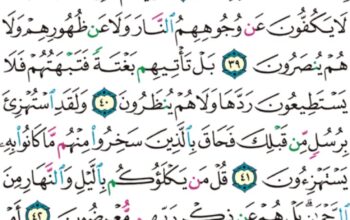 لَا يَكُفُّونَ عَن وُجُوهِهِمُ النَّارَ وَلَا عَن ظُهُورِهِمْ وَلَا
هُمْ يُنصَرُونَ ٣٩ بَلْ تَأْتِيهِم بَغْتَةً فَتَبْهَتُهُمْ فَلَا
يَسْتَطِيعُونَ رَدَّهَا وَلَا هُمْ يُنظَرُونَ ٤٠ وَلَقَدِ اسْتُهْزِئَ
بِرُسُلٍ مِّن قَبْلِكَ فَحَاقَ بِالَّذِينَ سَخِرُوا مِنْهُم مَّا كَانُوا بِهِ
يَسْتَهْزِءُونَ ٤١ قُلْ مَن يَكْلَؤُكُم بِاللَّيْلِ وَالنَّهَارِ مِنَ
الرَّحْمَٰنِ بَلْ هُمْ عَن ذِكْرِ رَبِّهِم مُّعْرِضُونَ ٤٢ أَمْ